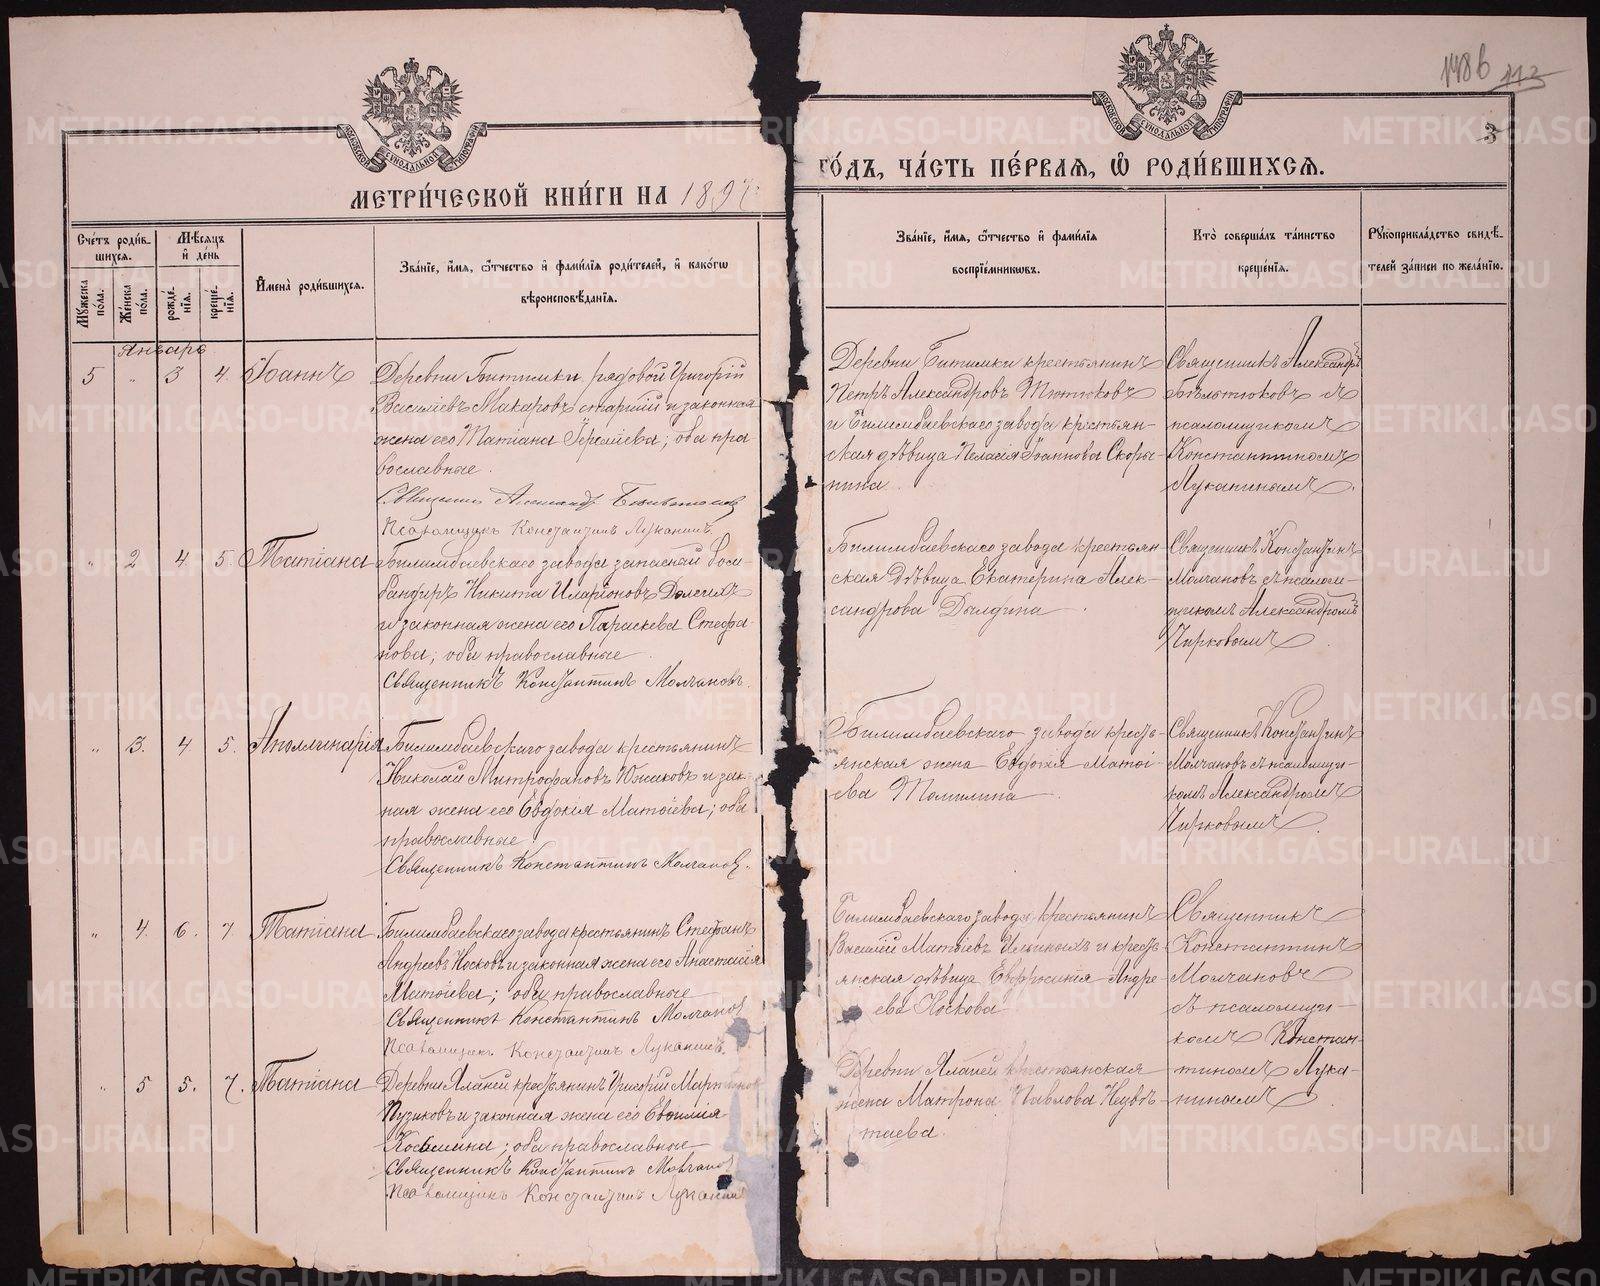 148 б 113
3
МОСКОВСКОЙ СѴНОДАЛЬНОЙ ТИПОГРАФІИ
МОСКОВСКОЙ СѴНОДАЛЬНОЙ ТИПОГРАФІИ
МЕТРИ́ЧЕСКОЙ КНИ́ГИ НА 1897
ГО́ДЪ, ЧА́СТЬ ПЕ́РВАЯ, Ѡ РОДИ́ВШИХСЯ.
Сче́тъ роди́в-
шихся.
Му́жеска по́ла.
Же́нска по́ла.
Мѣ́сяцъ и҆ де́нь
рожде́нія.
креще́нія.
И҆мена̀ роди́вшихся.
Зва́ніе, и҆́мя, ѻ҆́тчество и҆ фами́лія роди́телей, и҆ како́гѡ
вѣроисповѣ́данія.
Зва́ніе, и҆́мя, ѻ҆́тчество и҆ фами́лія
воспріе́мниковъ.
Кто̀ соверша́лъ та́инство
креще́нія.
Рꙋкоприкла́дство свидѣ́-
телей за́писи по жела́нію.
Январь
5 " 3 4. Іоаннъ
Деревни Битимки рядовой Григорій
Василіевъ Макаровъ старшій и законная
жена его Татіана Іереміева; оба пра
вославные.
Священникъ Александръ
Псаломщикъ Константинъ Луканинъ.
Деревни Битимки крестьянинъ
Петръ Александровъ Тютюковъ
и Билимбаевскаго завода крестьян-
ская дѣвица Пелагія Іоаннова Скоры-
нина
Священникъ Александръ
Бѣльтюковъ съ
псаломщикомъ
Константиномъ
Луканинымъ.
" 2 4 5. Татіана
Билимбаевскаго завода запасный бом-
бандиръ Никита Иларіоновъ
и законная жена его Параскева Стефа-
нова; оба православные.
Священникъ Константинъ Молчановъ.
Билимбаевскаго завода крестьян-
ская дѣвица Екатерина Алек-
сандрова
Священникъ Константинъ
Молчановъ съ псалом-
щикомъ Александромъ
Чирковымъ.
" 3. 4 5. Аполлинарія
Билимбаевскаго завода крестьянинъ
Николай Митрофановъ Южаковъ и зак-
ная жена его Евдокія Матѳіева; оба
православные
Священникъ Константинъ Молчановъ.
Билимбаевскаго завода кресть-
янская жена Евдокія Матѳі-
ева Томилина.
Священникъ Константинъ
Молчановъ съ псаломщи-
комъ Александромъ
Чирковымъ.
" 4. 6. 7 Татіана
Билимбаевскаго завода крестьянинъ Стефанъ
Андреевъ Носковъ и законная жена его Анастасія
Матѳіева; оба православные
Священникъ Константинъ Молчановъ
Псаломщикъ Константинъ Луканинъ.
Билимбаевскаго завода крестьянинъ
Василій Матѳіевъ Ильиныхъ и кресть-
янская дѣвица Евфросинія Андре
ева Носкова
Священникъ
Константинъ
Молчановъ
съ псаломщи-
комъ Констан-
тиномъ Лука-
нинымъ
" 5 5. 7. Татіана
Деревни Яланей крестьянинъ Григорій Мартиновъ
Пузиковъ и законная жена его Евѳимія
Косьмина; оба православные
Священникъ Константинъ Молчановъ
Псаломщикъ Константинъ Луканинъ
Деревни Яланей крестьянская
жена Матрона Павлова Неувѣ-
таева.
METRIKI.GASO-URAL.RU